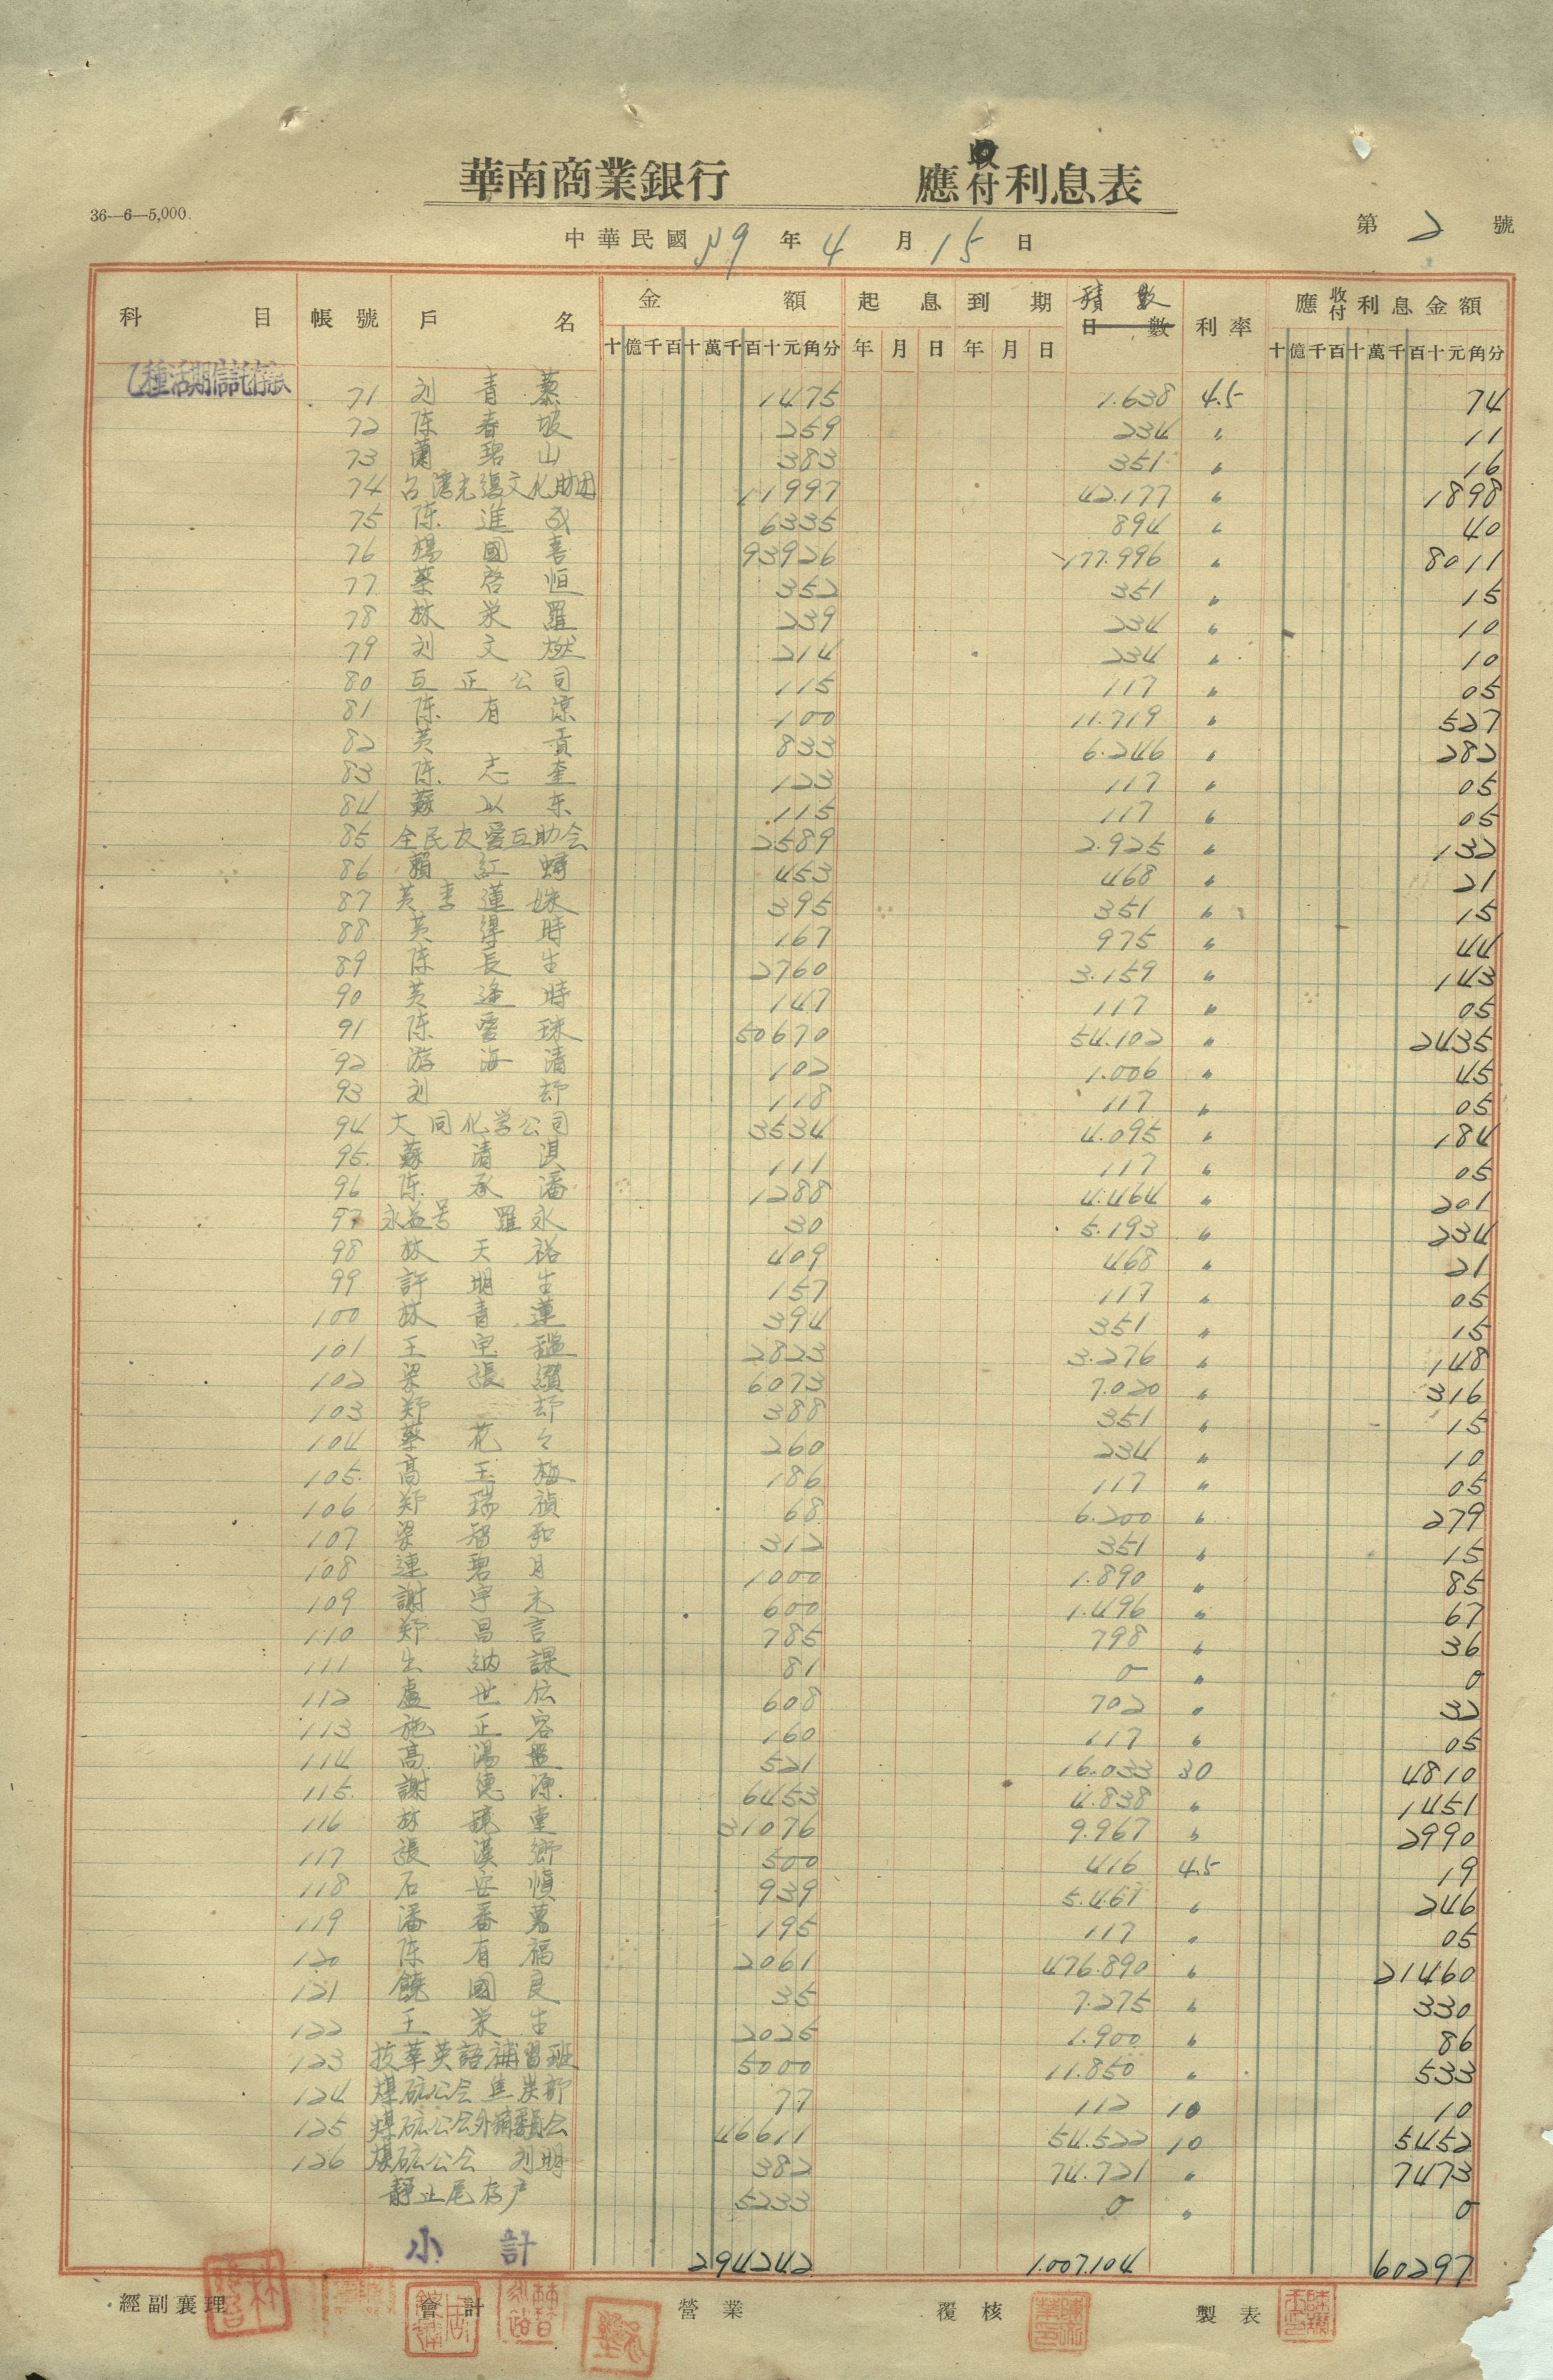 華南商業銀行 應收付利息表
36—6—5,000.
中華民國 39 年 4 月 15 日
第 2 號
科目 帳號 戶名 金額 起息 到期 積數 日數 利率 應收付利息金額
十億千百十萬千百十元角分 年月日 年月日 十億千百十萬千百十元角分
乙種活期信託存款
71 刘青藜 1475 1.638 4.5 74
72 陈春坡 259 234 〃 11
73 蘭碧山 383 351 〃 16
74 台湾光復文化財団 11997 42.177 〃 1898
75 陈進成 6335 894 〃 40
76 楊國喜 93926 177.996 〃 8011
77 蔡啓恒 352 351 〃 15
78 林荣羅 239 234 〃 10
79 刘文燃 214 234 〃 10
80 互正公司 115 117 〃 05
81 陈有深 100 11.719 〃 527
82 黄貢 833 6.246 〃 282
83 陈志奎 123 117 〃 05
84 蘇以东 115 117 〃 05
85 全民友愛互助会 2589 2.925 〃 132
86 賴紅 453 468 〃 21
87 黄李蓮妹 395 351 〃 15
88 黄得時 167 975 〃 44
89 陈長生 2760 3.159 〃 143
90 黄逢時 147 117 〃 05
91 陈愛珠 50670 54.102 〃 2435
92 游海清 102 1.006 〃 45
93 刘 118 117 〃 05
94 大同化学公司 3534 4.095 〃 184
95 蘇清淇 111 117 〃 05
96 陈承潘 1288 4.464 〃 201
97 永益号 羅永 30 5.193 〃 234
98 林天裕 409 468 〃 21
99 許明生 157 117 〃 05
100 林青蓮 394 351 〃 15
101 王 2823 3.276 〃 148
102 梁張纘 6073 7.020 〃 316
103 郑 388 351 〃 15
104 蔡花々 260 234 〃 10
105 高玉梅 186 117 〃 05
106 郑瑞禎 68 6.200 〃 279
107 梁智和 312 351 〃 15
108 連碧月 1000 1.890 〃 85
109 謝宇光 600 1.496 〃 67
110 郑昌言 785 798 〃 36
111 出納課 81 0 〃 0
112 盧世伝 608 702 〃 32
113 施正容 160 117 〃 05
114 高湯盤 521 16.033 30 4810
115 謝德源 6453 4.838 〃 1451
116 林 31076 9.967 〃 2990
117 張漢鄉 500 416 4.5 19
118 石安慎 939 5.461 〃 246
119 潘番薯 195 117 〃 05
120 陈有福 2061 476.890 〃 21460
121 饒國良 35 7.275 〃 330
122 王荣生 2025 1.900 〃 86
123 拔萃英語補習班 5000 11.850 〃 533
124 煤矿公会 焦炭部 77 112 10 10
125 煤矿公会外 46611 54.522 10 5452
126 煤矿公会 刘明 382 74.721 〃 7473
靜止尾存户 5233 0 〃 0
小計 294242 1.007.104 60297
經副襄理 會計 營業 覆核 製表